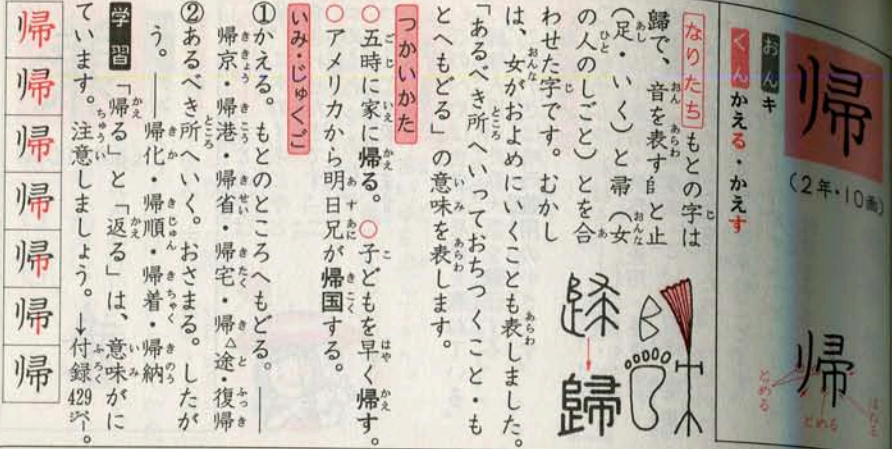 帰
(2年・10画)
おん キ
くん かえる・かえす
帰
とめる
とめる
はねる
なりたち もとの字は
歸で、音を表す𠂤と止
(足・いく)と帚(女
の人のしごと)とを合
わせた字です。むかし
は、女がおよめにいくことも表しました。
「あるべき所へいっておちつくこと・も
とへもどる」の意味を表します。
歸
つかいかた
○五時に家に帰る。○子どもを早く帰す。
○アメリカから明日兄が帰国する。
いみ・じゅくご
①かえる。もとのところへもどる。――
帰京・帰港・帰省・帰宅・帰△途・復帰
②あるべき所へいく。おさまる。したが
う。――帰化・帰順・帰着・帰納
学習 「帰る」と「返る」は、意味がに
ています。注意しましょう。→付録429ジペー。
帰 帰 帰 帰 帰 帰 帰